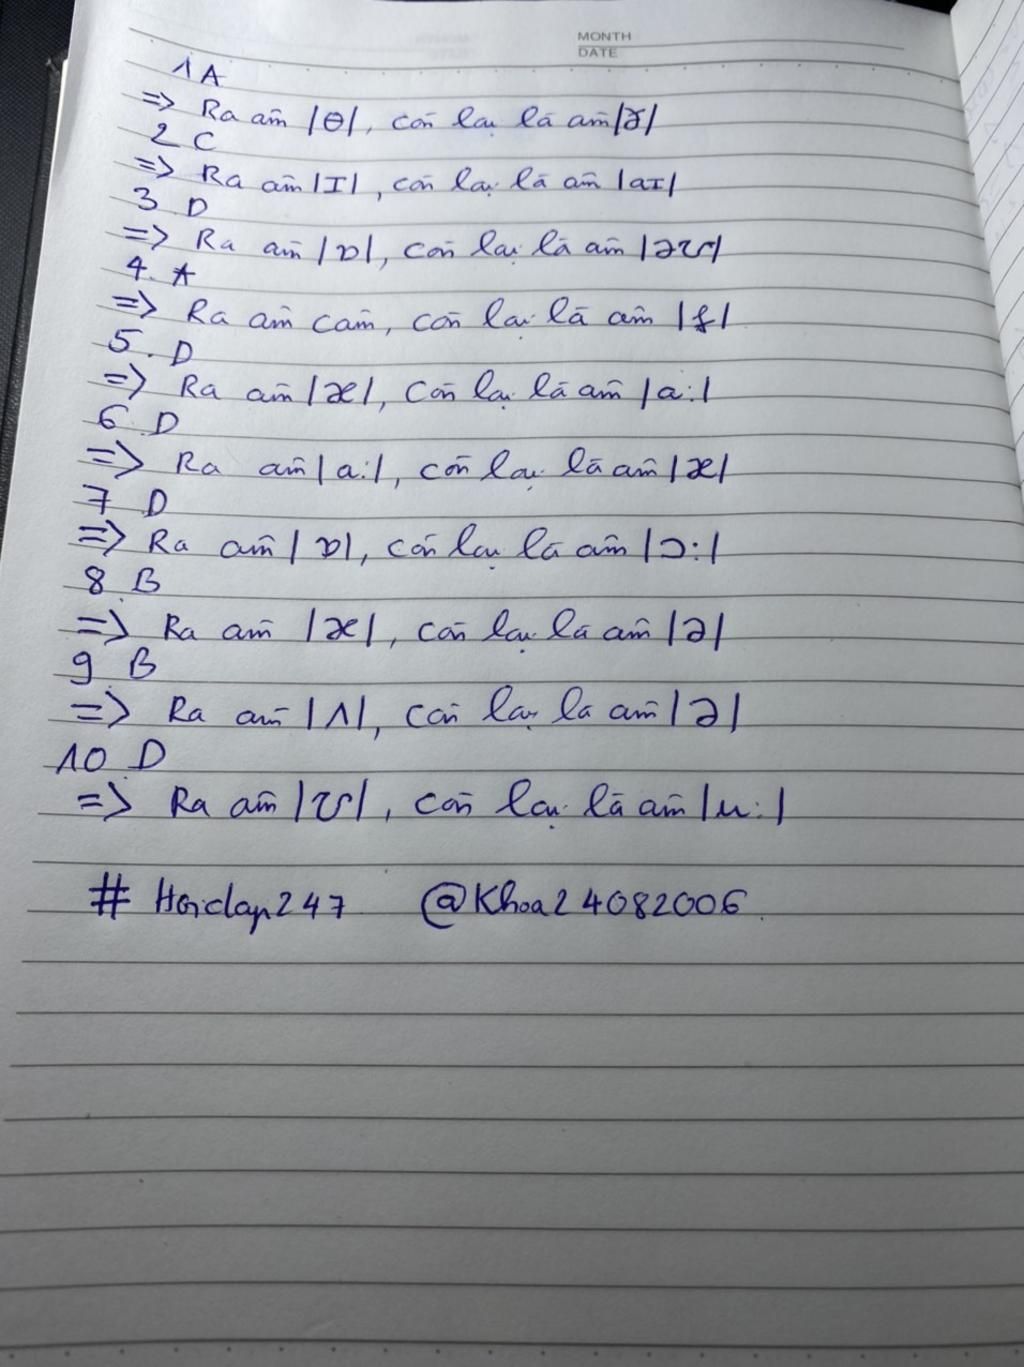 MONTH
DATE
1 A
=> Ra âm /θ/, còn lại là âm /ð/
2 C
=> Ra âm /I/, còn lại là âm /aɪ/
3. D
=> Ra âm /ɒ/, còn lại là âm /əʊ/
4. A
=> Ra âm câm, còn lại là âm /f/
5. D
=> Ra âm /æ/, còn lại là âm /a:/
6. D
=> Ra âm /a:/, còn lại là âm /æ/
7 D
=> Ra âm /ɒ/, còn lại là âm /ɔ:/
8. B
=> Ra âm /æ/, còn lại là âm /ə/
9 B
=> Ra âm /ʌ/, còn lại là âm /ə/
10 D
=> Ra âm /ʊ/, còn lại là âm /u:/
# Hoidap247 @Khoa24082006.